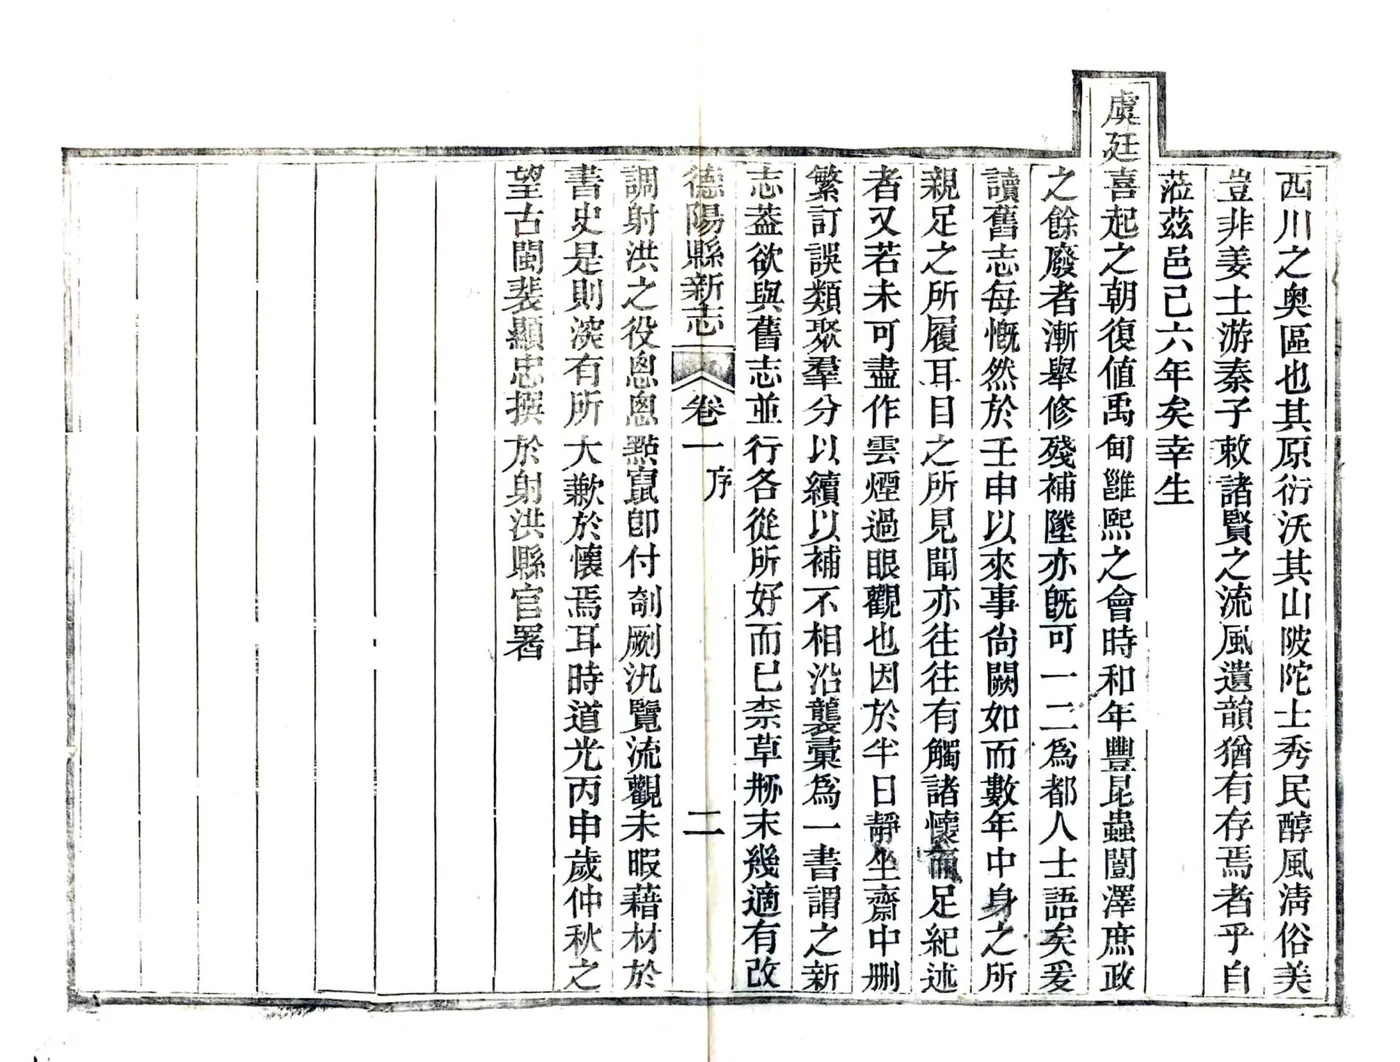 西川之奥區也其原衍沃其山陂陀士秀民醇風淸俗美
豈非姜士游秦子敕諸賢之流風遺韻猶有存焉者乎自
蒞茲邑己六年矣幸生
虞廷喜起之朝復值禹甸雝熙之會時和年豐昆蟲闓澤庶政
之餘廢者漸舉修殘補墜亦旣可一二爲都人士語矣爰
讀舊志每慨然於壬申以來事尙闕如而數年中身之所
親足之所履耳目之所見聞亦往往有觸諸懷而足紀述
者又若未可盡作雲煙過眼觀也因於半日靜坐齋中删
繁訂誤類聚羣分以續以補不相沿襲彙爲一書謂之新
志葢欲與舊志並行各從所好而已柰草刱未幾適有改
德陽縣新志 卷一 序 二
調射洪之役悤悤點竄卽付剞劂汎覽流觀未暇藉材於
書史是則深有所大歉於懷焉耳時道光丙申歲仲秋之
望古閩裴顯忠撰於射洪縣官署